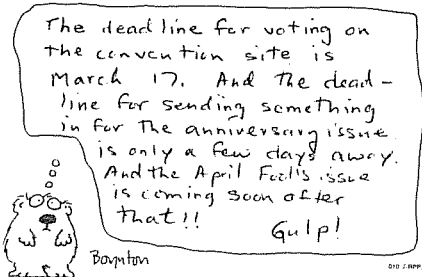 The deadline for voting on
the convention site is
March 17. And the dead-
line for sending something
in for the anniversary issue
is only a few days away.
And the April Fool's issue
is coming soon after
that!!
Gulp!
Boynton